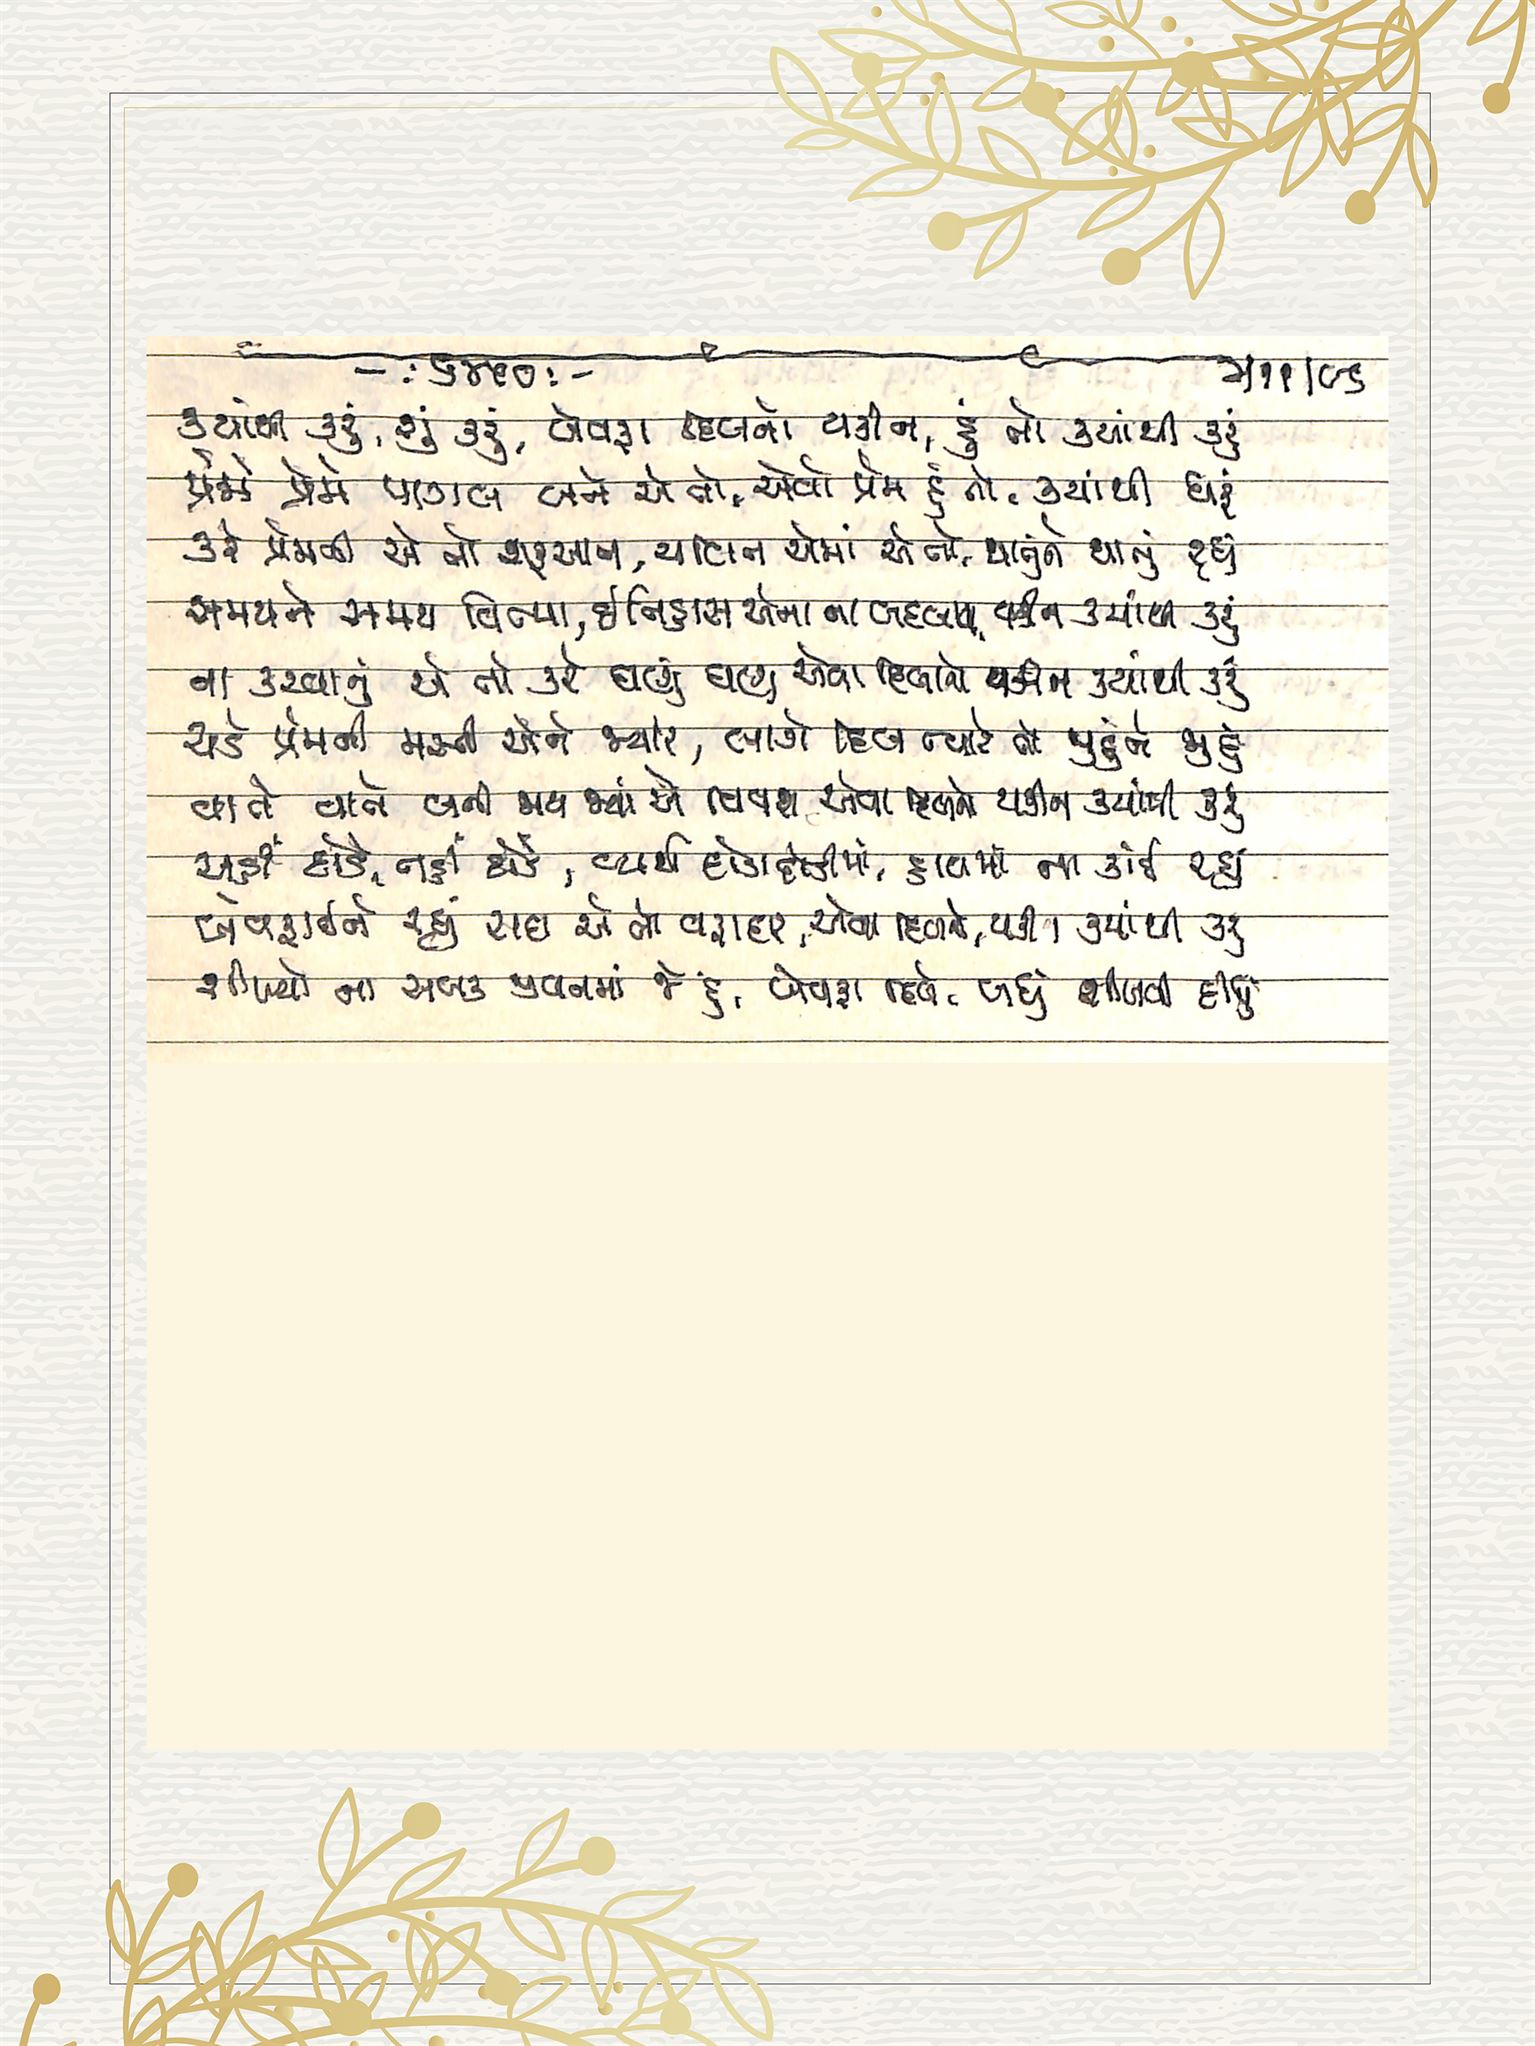 -: ૬૪૯૦ :-
ક્યાંથી કરું, શું કરું, બેવફા દિલનો યકીન, હું તો ક્યાંથી કરું
પ્રેમે પ્રેમે પાગલ બને એ તો, એવો પ્રેમ હું તો, ક્યાંથી ધરું
કરે પ્રેમની એ તો શરૂઆત, યકીન એમાં એનો, થાતુંને થાતું રહ્યું
સમયને સમય વિત્યા, ઈતિહાસ એના ના બદલાયા, યકીન ક્યાંથી કરું
ના કરવાનું એ તો કરે ઘણું ઘણું એવા દિલનો યકીન ક્યાંથી કરું
ચડે પ્રેમની મસ્તી એને જ્યારે, લાગે દિલ ત્યારે તો જુદુંને જુદું
વાતે વાતે બની જાય જ્યાં એ વિવશ, એવા દિલનો યકીન ક્યાંથી કરું
અહીં દોડે, તહીં દોડે, વ્યર્થ દોડાદોડીમાં, હાથમાં ના કાંઈ રહ્યું
બેવફાઈને રહ્યું સદા એ તો વફાદાર, એવા દિલનો, યકીન ક્યાંથી કરું
શીખ્યો ના સબક જીવનમાં જે હું, બેવફા દિલે, બધું શીખવી દીધું